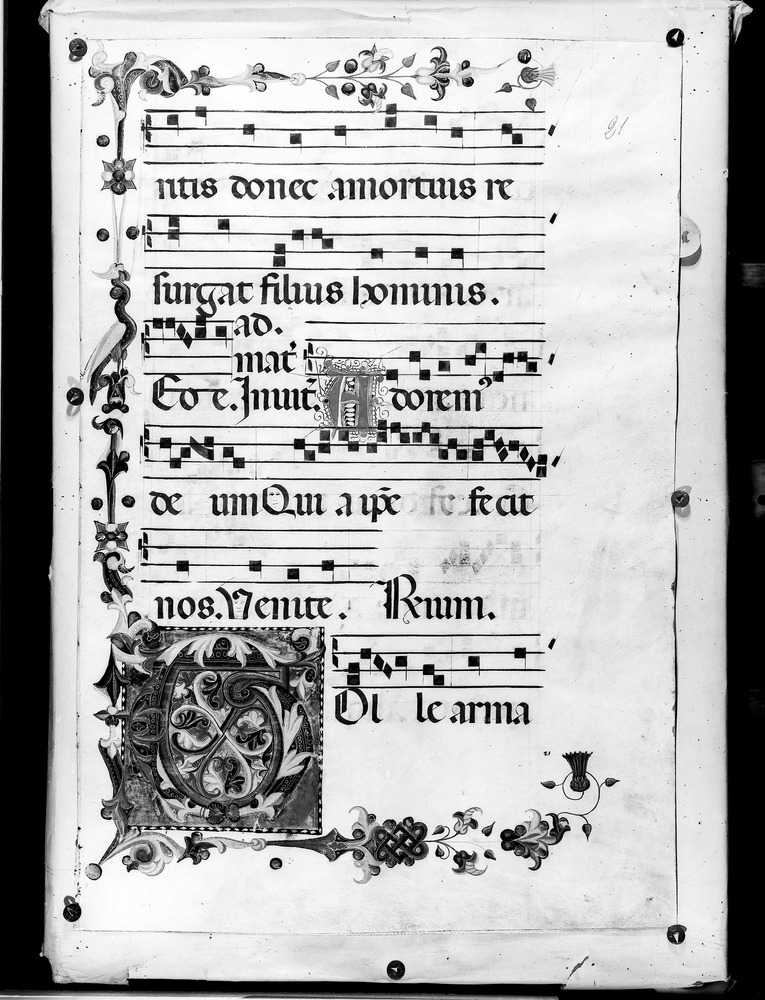 21
ntis donec amortuis re
surgat filius hominis.
ad.
mat̄
Eo e. Inuit. Adorem9
de um Qui a ip̄e fecit
nos. Venite. Rium.
Tol le arma
21